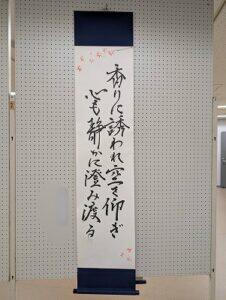 香りに誘われ空を仰ぎ
心も静かに澄み渡る